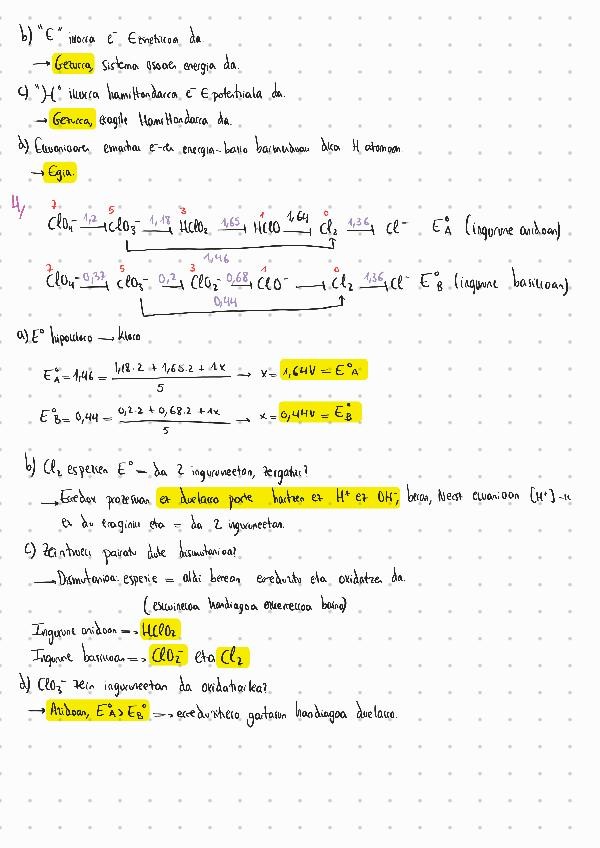 b) "E" ikurra e⁻ E zinetikoa da.
→ Gezurra, sistema osoaren energia da.
c) "Ĥ" ikurra hamiltondarra e⁻ E potentziala da.
→ Gezurra, eragile Hamiltondarra da.
d) Ekuazioaren emaitza e-den energia-balio baimenduak dira H atomoan.
→ Egia.
4/
7 5 3 1 0
ClO₄⁻ 1,2→ ClO₃⁻ 1,18→ HClO₂ 1,65→ HClO 1,64→ Cl₂ 1,36→ Cl⁻ E°A (ingurune azidoan)
1,46
7 5 3 1 0
ClO₄⁻ 0,37→ ClO₃⁻ 0,2→ ClO₂⁻ 0,68→ ClO⁻ → Cl₂ 1,36→ Cl⁻ E°B (ingurune basikoan)
0,44
a) E° hipokloro → kloro
E°A = 1,46 = (1,18·2 + 1,65·2 + 1x)/5 → x = 1,64V = E°A
E°B = 0,44 = (0,2·2 + 0,68·2 + 1x)/5 → x = 0,44V = E°B
b) Cl₂ espezien E° = da 2 inguruneetan, zergatik?
→ Erredox prozesuan ez duelako parte hartzen ez H⁺ ez OH⁻, beraz, Nernst ekuazioan [H⁺]-k
ez du eraginik eta = da 2 inguruneetan.
c) Zeintzuek pairatu dute dismutazioa?
→ Dismutazioa: espezie = aldi berean erreduzitu eta oxidatzen da.
(eskuinekoa handiagoa ezkerrekoa baino)
Ingurune azidoan => HClO₂
Ingurune basikoan => ClO₂⁻ eta Cl₂
d) ClO₃⁻ zein inguruneetan da oxidatzailea?
→ Azidoan, E°A > E°B => erreduzitzeko gaitasun handiagoa duelako.